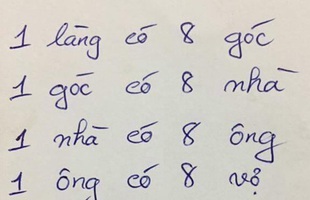 1 làng có 8 gốc
1 gốc có 8 nhà
1 nhà có 8 ông
1 ông có 8 vợ